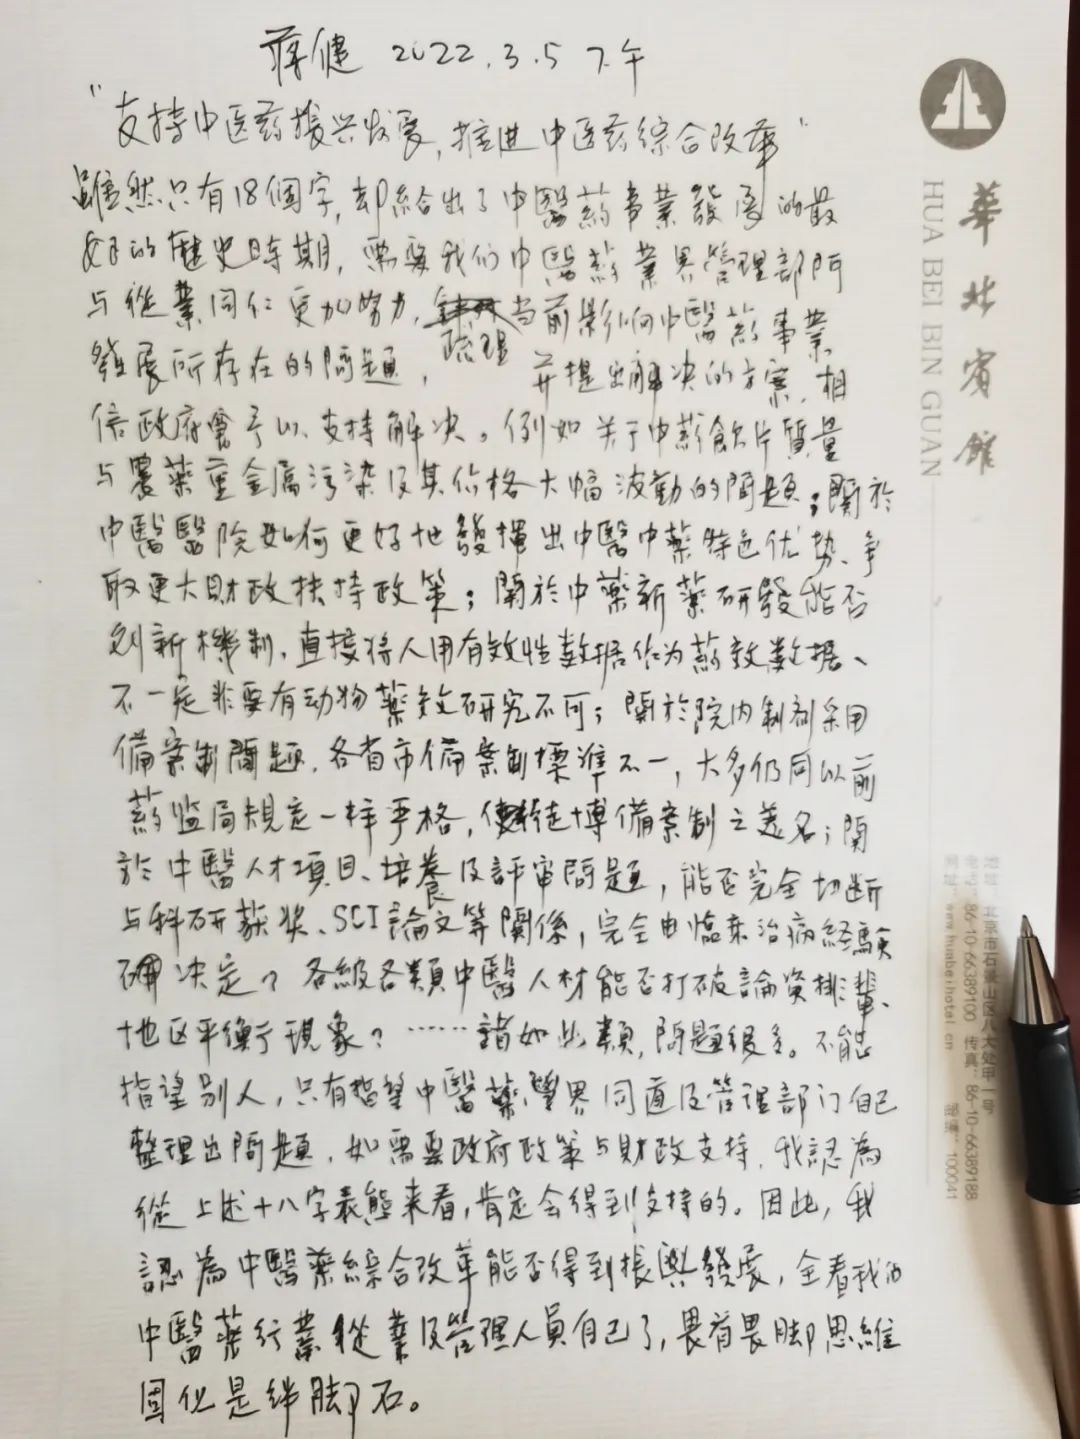 蒋健 2022.3.5 下午
"支持中医药振兴发展,推进中医药综合改革"
雖然只有18個字,却給出了中醫药事業發展的最
好的歷史時期,需要我们中醫药業界管理部门
与從業同仁更加努力,当前影响中醫药事業
梳理
發展所存在的問題,并提出解决的方案,相
信政府會予以支持解决。例如关于中药飲片質量
与農藥重金属污染及其价格大幅波動的問題;關於
中醫醫院如何更好地發揮出中醫中藥特色优势、争
取更大財政扶持政策;關於中藥新藥研發能否
创新機制,直接将人用有效性数据作为药效数据、
不一定非要有动物藥效研究不可;關於院内制剂采用
備案制問題,各省市備案制標準不一,大多仍同以前
药监局規定一样严格,使徒博備案制之美名;關
於中醫人才項目、培養及評审問題,能否完全切断
与科研获奖、SCI論文等關係,完全由臨床治病经験
来决定?各級各類中醫人材能否打破論资排輩、
地区平衡现象?……諸如此類,問題很多。不能
指望别人,只有指望中醫藥業界同道及管理部门自己
整理出問題,如需要政府政策与財政支持,我認為
從上述十八字表態来看,肯定会得到支持的。因此,我
認為中醫藥綜合改革能否得到振興發展,全看我们
中醫藥行業從業及管理人員自己了,畏首畏脚思維
固化是绊脚石。
華北賓館
HUA BEI BIN GUAN
地址:北京市石景山区八大处甲一号
电话:86-10-66389100 传真:86-10-66389188
网址:www.huabeihotel.cn 邮编:100041